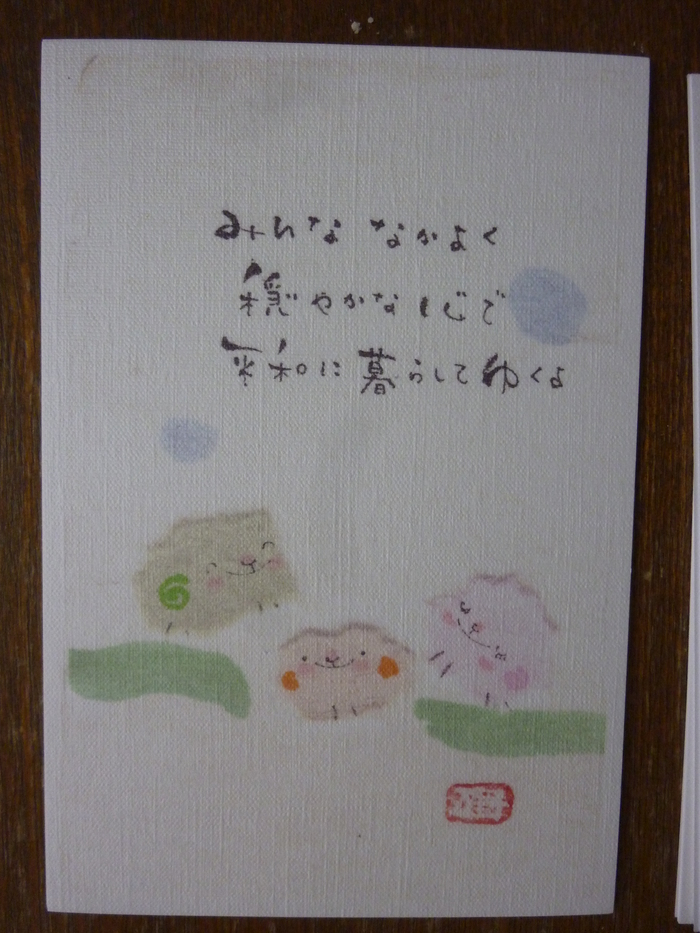 みんな なかよく
穏やかな心で
平和に暮らしてゆくよ